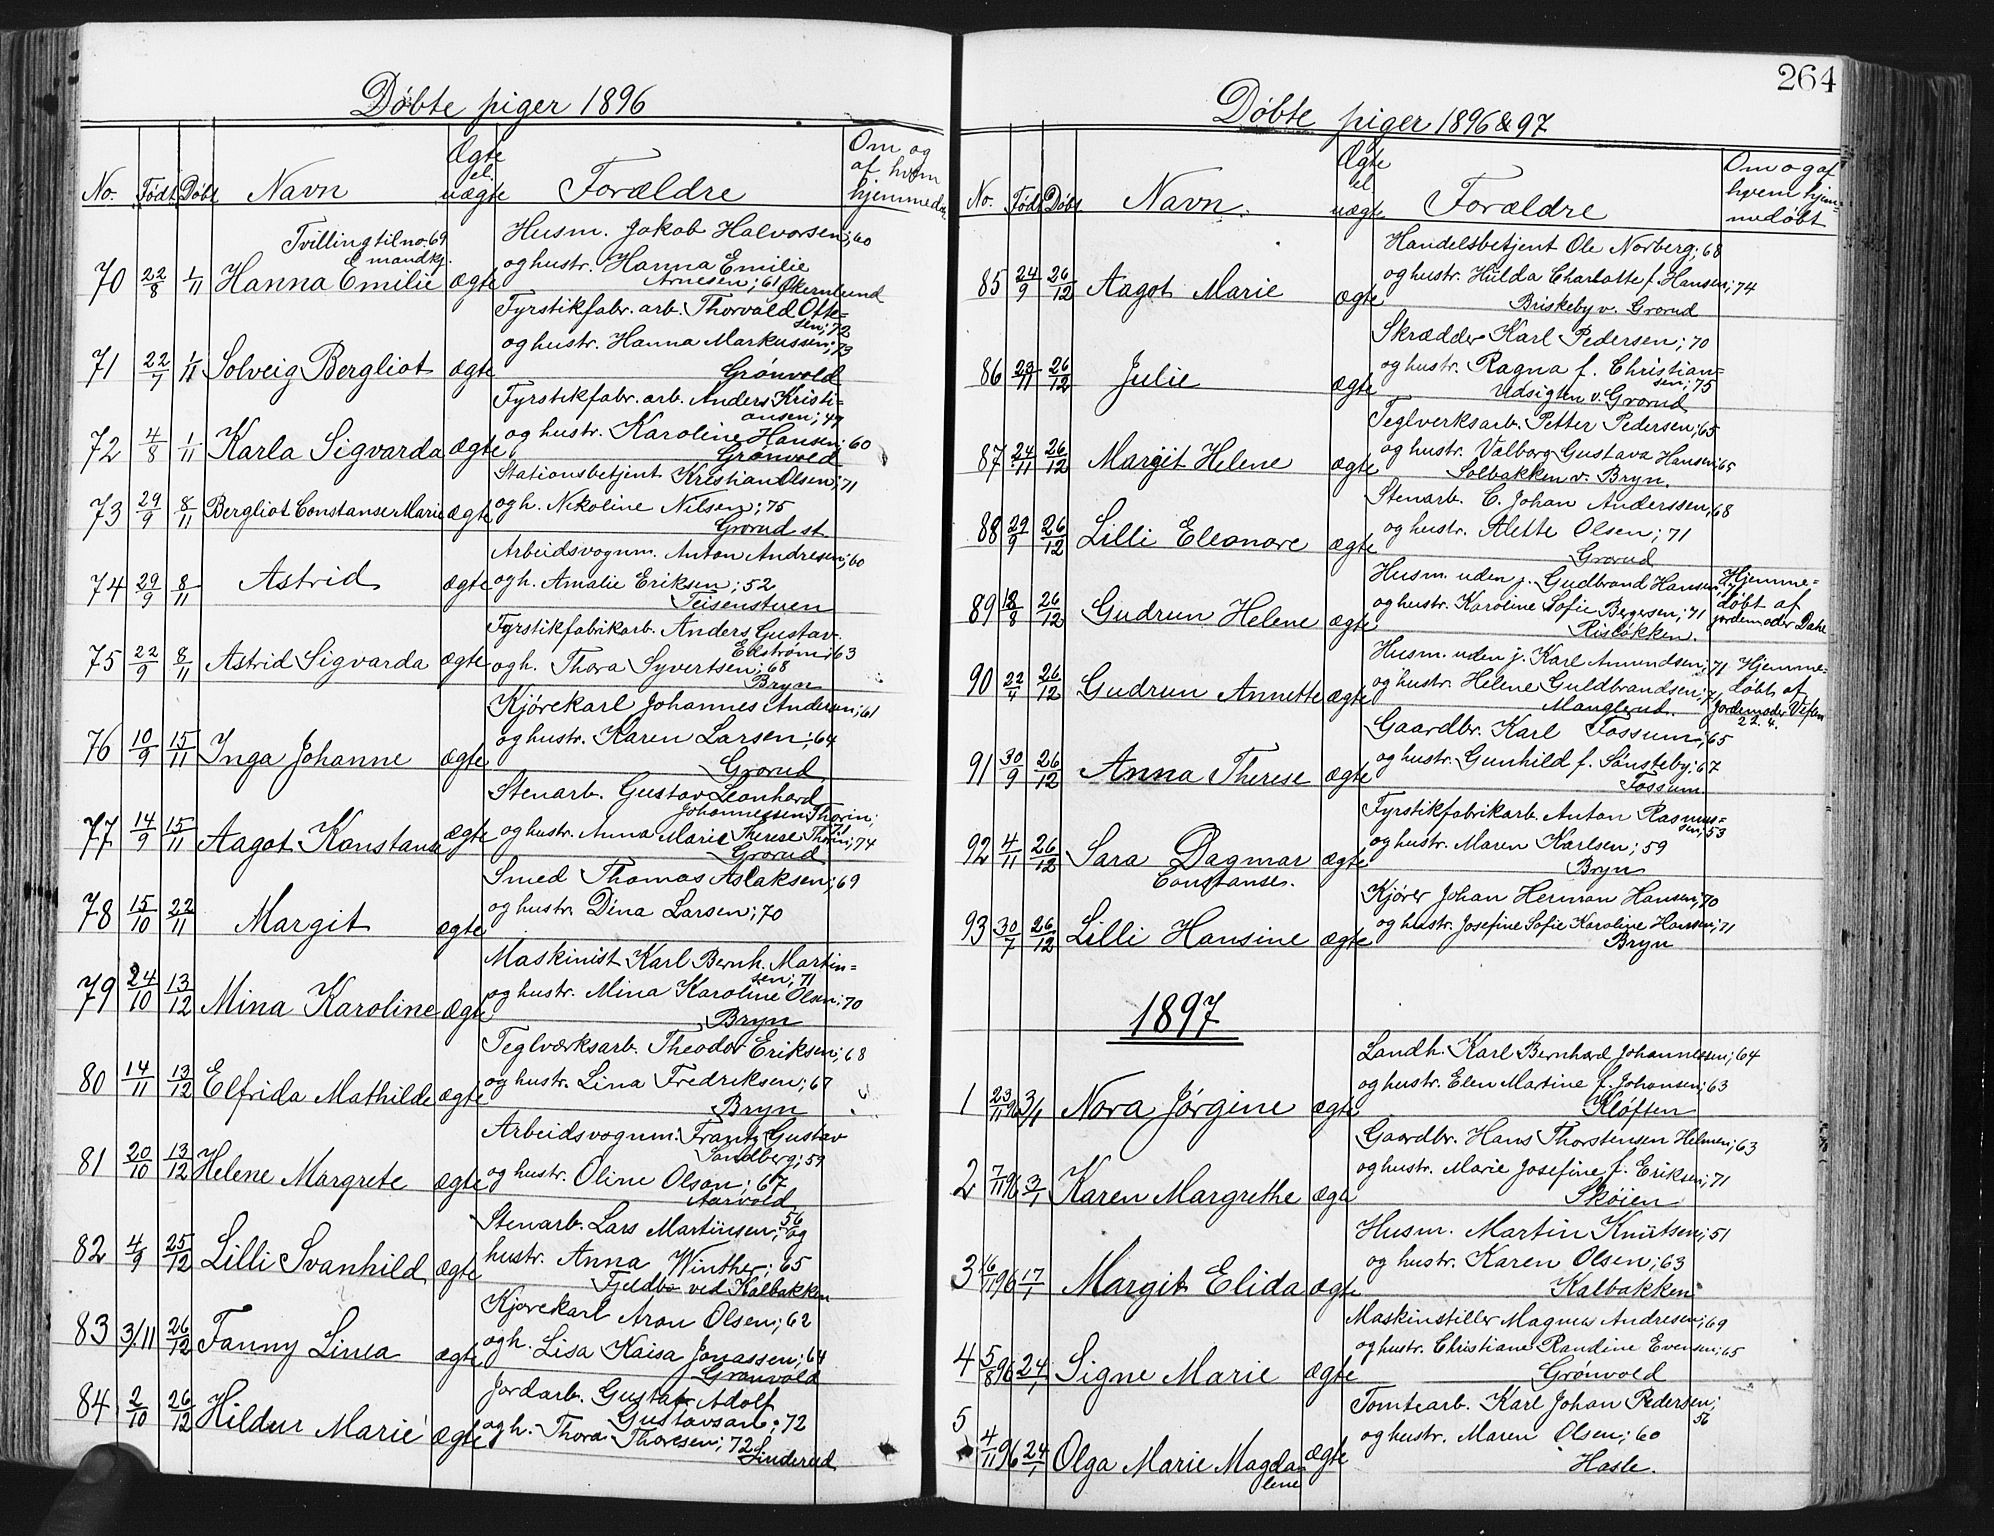 Døbte piger 1896
No. Født Døbt Navn Ægte el. uægte Forældre Om og af hvem hjemmedøbt
Tvilling til no 69 mandkj.
70 22/8 1/11 Hanna Emilie ægte Husm. Jakob Halvorsen; 60
og hustr. Hanna Emilie
Arnesen; 61 Økernlund
71 22/7 1/11 Solveig Bergliot ægte Fyrstikfabr. arb. Thorvald Otte=
sen; 72
og hustr. Hanna Markussen; 73
Grønvold
72 4/8 1/11 Karla Sigvarda ægte Fyrstikfabr. arb. Anders Kristi=
ansen; 47
og hustr. Karoline Hansen; 60
Grønvold
73 29/9 8/11 Bergliot Constanse Marie ægte Stationsbetjent Kristian Olsen; 71
og h. Nikoline Nilsen; 75
Grorud st.
74 29/9 8/11 Astrid ægte Arbeidsvognm. Anton Andresen; 60
og h. Amalie Eriksen; 52
Teisenstuen
75 22/9 8/11 Astrid Sigvarda ægte Fyrstikfabrikarb. Anders Gustav
Ekstrøm; 63
og h. Thora Syvertsen; 68
Bryn
76 10/9 15/11 Inga Johanne ægte Kjørekarl Johannes Andersen; 61
og hustr. Karen Larsen; 64
Grorud
77 14/9 15/11 Aagot Konstansa ægte Stenarb. Gustav Leonhard
Johannessen Thorin; 71
og hustr. Anna Marie Therese Thorin; 74
Grorud
78 15/10 22/11 Margit ægte Smed Thomas Aslaksen; 69
og hustr. Dina Larsen; 70
79 24/10 13/12 Mina Karoline ægte Maskinist Karl Bernh. Martin=
sen; 71
og hustr. Mina Karoline Olsen; 70
Bryn
80 14/11 13/12 Elfrida Mathilde ægte Teglværksarb. Theodor Eriksen; 68
og hustr. Lina Fredriksen; 67
Bryn
81 20/10 13/12 Helene Margrete ægte Arbeidsvognm. Frantz Gustav
Sandberg; 59
og hustr. Oline Olson; 67
Aarvold
82 4/9 25/12 Lilli Svanhild ægte Stenarb. Lars Martinsen; 56 og
hustr. Anna Winther; 65
Fjeldbo ved Kalbakken
83 3/11 26/12 Fanny Linea ægte Kjørekarl Aron Olsen; 62
og h. Lisa Kaisa Jonassen; 64
Grønvold
84 2/10 26/12 Hildur Marie ægte Jordarb. Gustaf Adolf
Gustavsan; 72
og h. Thora Thoresen; 72
Linderud
264
Døbte piger 1896 & 97
No. Født Døbt Navn. Ægte el. uægte Forældre Om og af hvem hjemmedøbt
85 24/9 26/12 Aagot Marie ægte Handelsbetjent Ole Norberg; 68
og hustr. Hulda Charlotte f. Hansen; 74
Briskeby v. Grorud
86 23/11 26/12 Julie ægte Skrædder Karl Pedersen; 70
og hustr. Ragna f. Christian=
sen; 75
Udsigten v. Grorud
87 24/11 26/12 Margit Helene ægte Teglverksarb. Petter Pedersen; 65
og hustr. Valborg Gustava Hansen; 65
Solbakken v. Bryn.
88 29/9 26/12 Lilli Eleonore ægte Stenarb. C. Johan Anderssen; 68
og hustr. Alette Olsen; 71
Grorud
89 18/8 26/12 Gudrun Helene ægte Husm. uden j. Gudbrand Hansen;
og hustr. Karoline Sofie Bergersen; 71
Risløkken.
Hjemme=
døbt af
jordemoder Dahl
90 22/4 26/12 Gudrun Annette ægte Husm. uden j. Karl Amundsen; 71
og hustr. Helene Guldbrandsen; 71
Manglerud.
Hjemme=
døbt af
Jordemoder
22.4.
91 30/9 26/12 Anna Therese ægte Gaardbr. Karl Fossum; 65
og hustr. Gunhild f. Sønsteby; 67
Fossum
92 4/11 26/12 Sara Dagmar
Constanse. ægte Fyrstikfabrikarb. Anton Rasmus=
sen; 53
og hustr. Maren Karlsen; 59
Bryn
93 30/7 26/12 Lilli Hansine ægte Kjører Johan Herman Hansen; 70
og hustr. Josefine Sofie Karoline Hansen; 71
Bryn
1897
1 23/11 96 3/1 Nora Jørgine ægte Landh. Karl Bernhard Johannessen; 64
og hustr. Elen Martine f. Johansen; 63
Kløften
2 7/11 96 3/1 Karen Margrethe ægte Gaardbr. Hans Thorstensen Helmen; 63
og hustr. Marie Josefine f. Eriksen; 71
Skøien
3 16/11 96 17/1 Margit Elida ægte Husm. Martin Knutsen; 51
og hustr. Karen Olsen; 63
Kalbakken
4 5/8 96 24/1 Signe Marie ægte Maskinstiller Magnus Andresen; 69
og hustr. Christiane Randine Evensen; 65
Grønvold
5 4/11 96 24/1 Olga Marie Magda=
lene ægte Tomtearb. Karl Johan Pedersen;
56
og hustr. Maren Olsen; 60
Hasle.